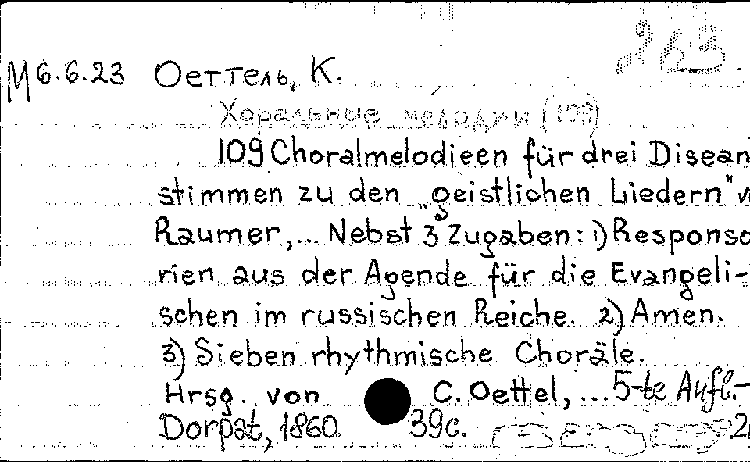 263.
М 6.6.23 Оеттель, К.
Хоральные мелодии (109)
109 Choralmelodieen für drei Disean
stimmen zu den „geistlichen Liedern" v
Raumer,... Nebst 3 Zugaben: 1) Responso
rien aus der Agende für die Evangeli-
schen im russischen Reiche. 2) Amen.
3) Sieben rhythmische Choräle.
Hrsg. von C. Oettel, ... 5-te Aufl.-
Dorpat, 1860. 39c.